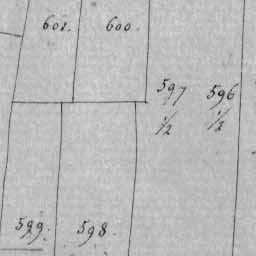 602. 600.
597 596
1/2 1/2
599. 598.